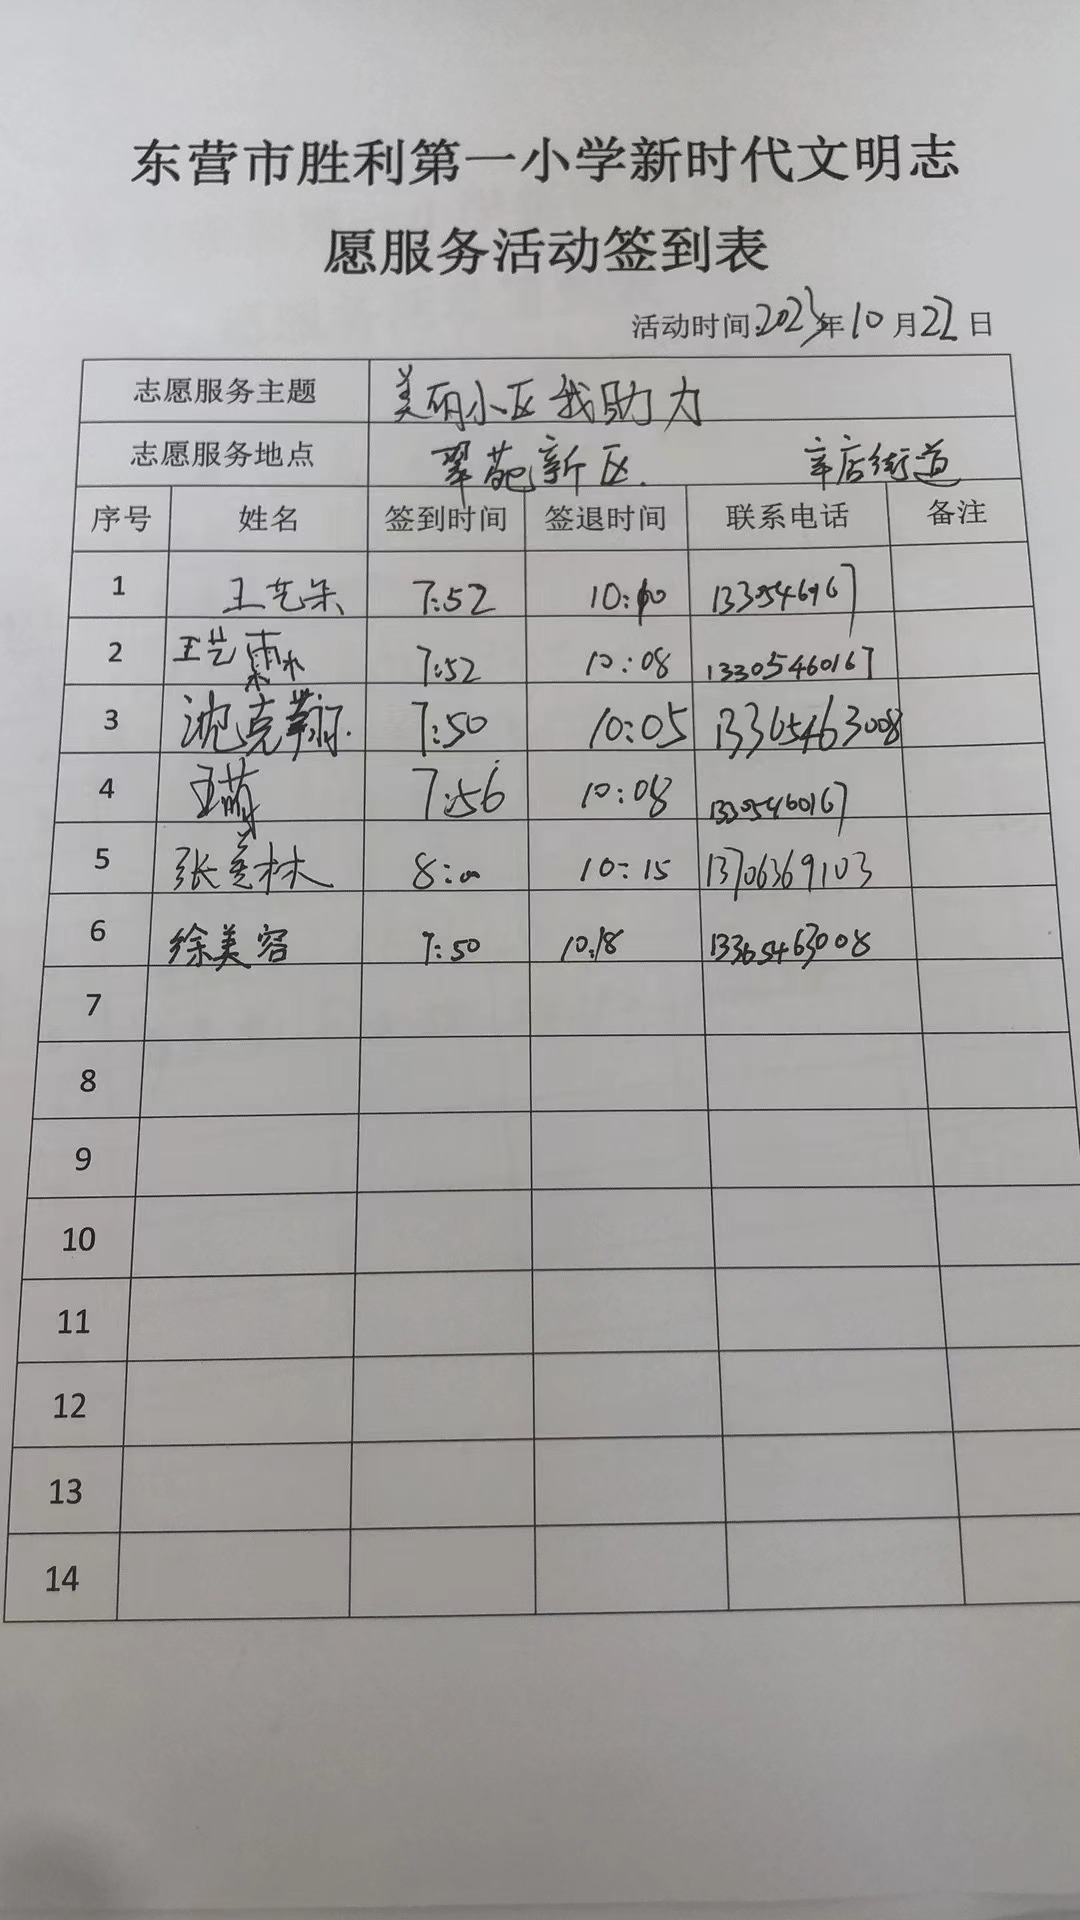 东营市胜利第一小学新时代文明志
愿服务活动签到表
活动时间:2023年10月22日
志愿服务主题 美丽小区我助力
志愿服务地点 翠苑新区. 辛店街道
序号 姓名 签到时间 签退时间 联系电话 备注
1 王艺朵 7:52 10:10
2 王艺霖 7:52 10:08 13305460167
3 沈克翔. 7:50 10:05 13365463008
4 王萌 7:56 10:08 13305460167
5 张美林 8:00 10:15 13706369103
6 徐美容 7:50 10:18 13365463008
7
8
9
10
11
12
13
14